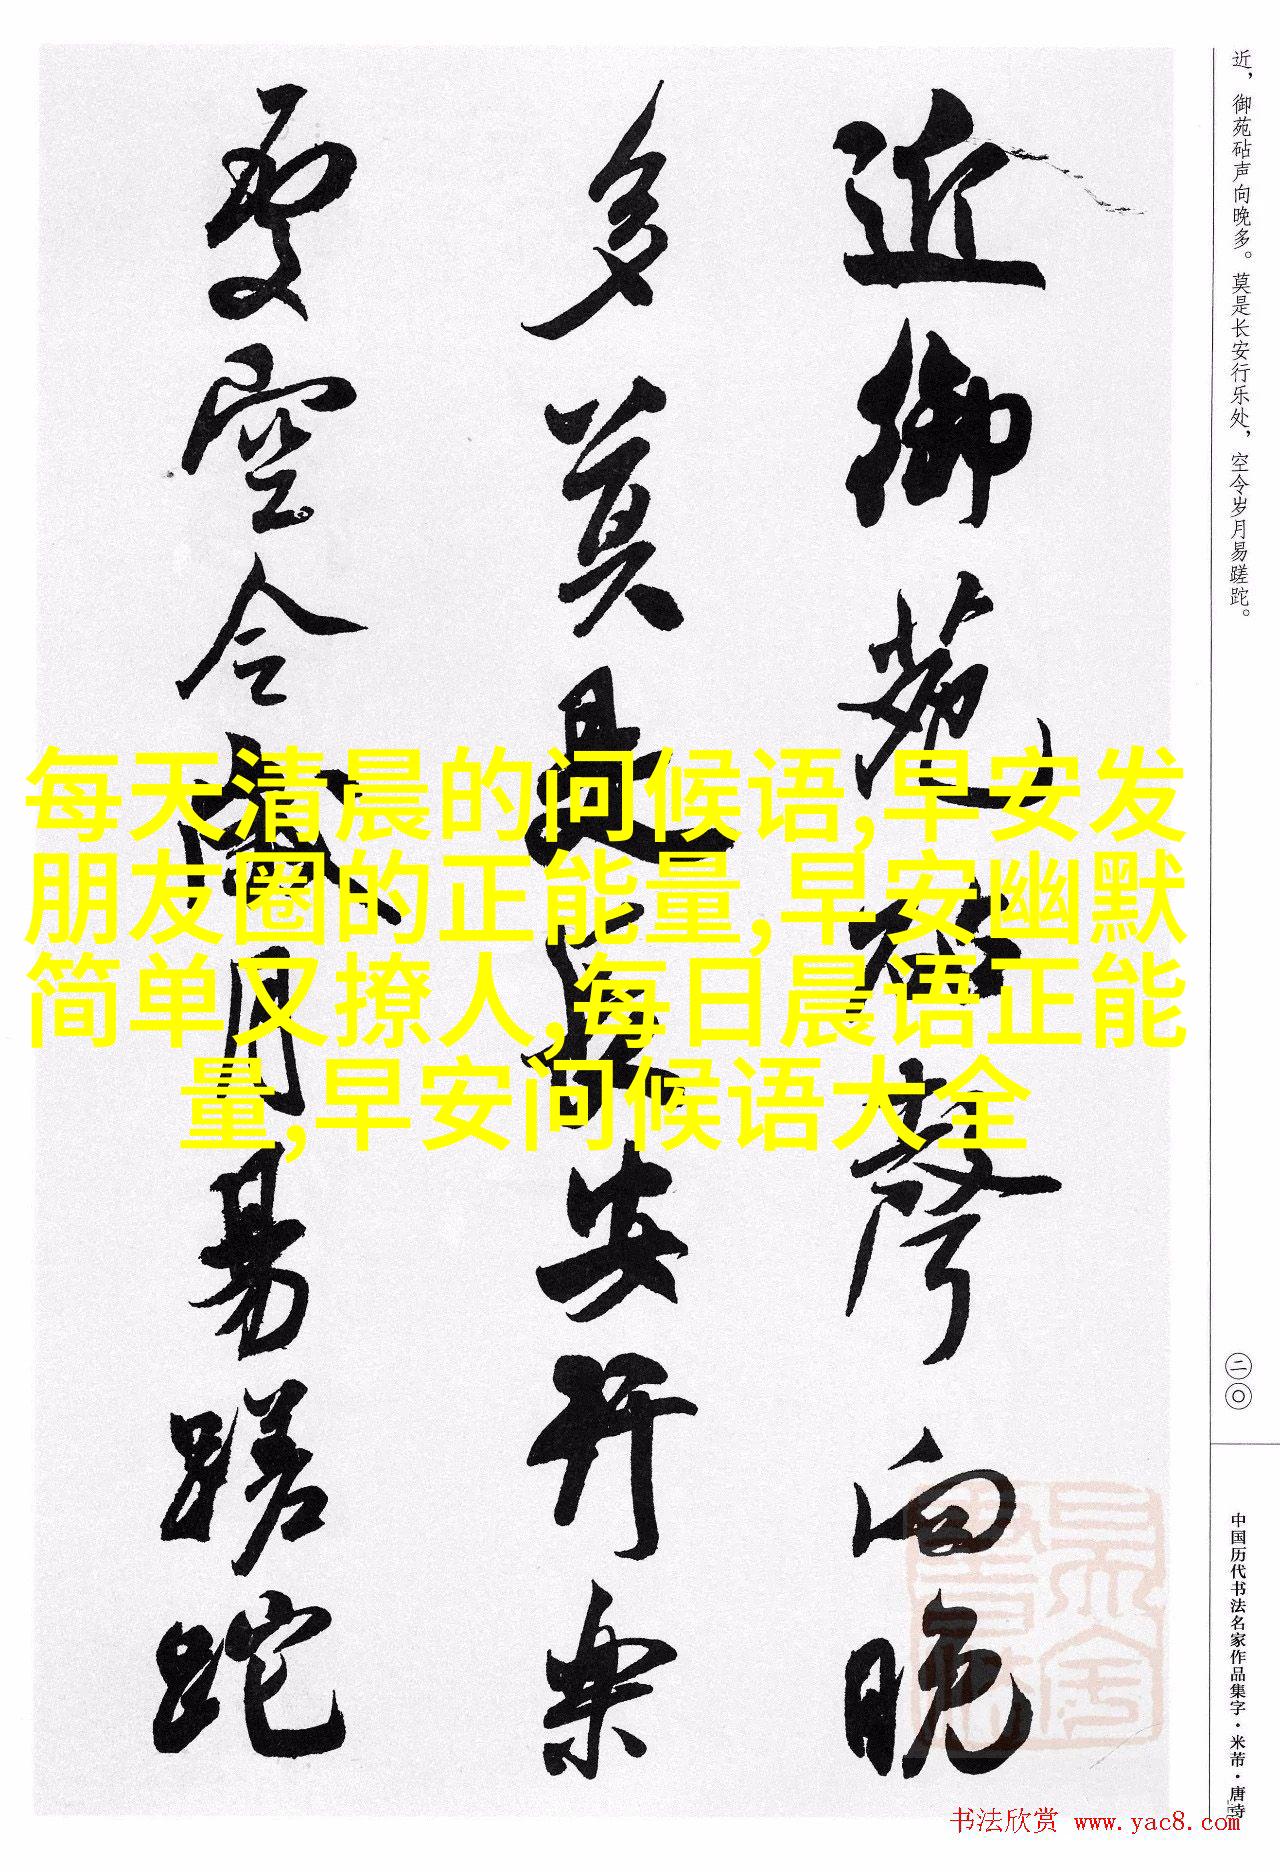 近，御苑砧声向晚多。莫是长安行乐处，空令岁月易蹉跎。
近御苑砧聲向晚
多莫是長安行樂
處空令歲月易蹉跎
每天清晨的问候语,早安发
朋友圈的正能量,早安幽默
简单又撩人,每日晨语正能
量,早安问候语大全
二〇
中国历代书法名家作品集字·米芾·唐诗
书法欣赏 www.yac8.com